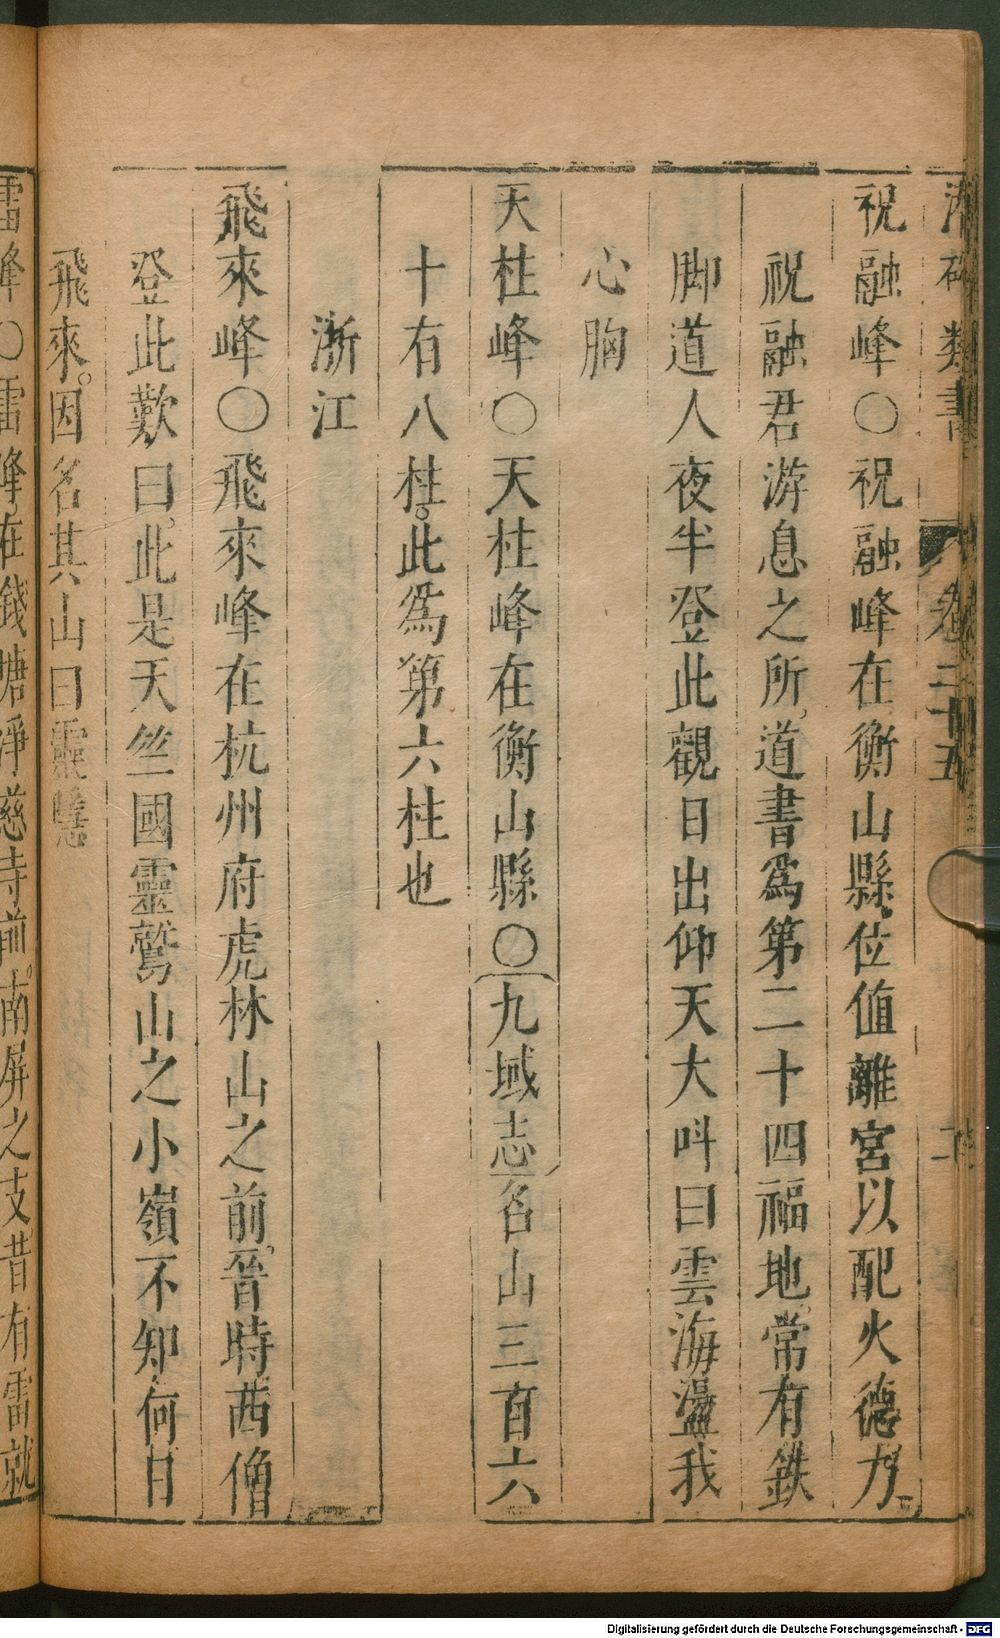 類書 卷二十五 二
祝融峰○祝融峰在衡山縣位值離宮以配火德乃
祝融君游息之所道書爲第二十四福地常有鉄
脚道人夜半登此觀日出仰天大呌曰雲海盪我
心胸
天柱峰○天柱峰在衡山縣○九域志名山三百六
十有八柱此爲第六柱也
浙江
飛來峰○飛來峰在杭州府虎林山之前晉時西僧
登此歎曰此是天竺國靈鷲山之小嶺不知何日
飛來因名其山曰靈隱
雷峰○雷峰在錢塘淨慈寺前南屏之支昔有雷就
Digitalisierung gefördert durch die Deutsche Forschungsgemeinschaft - DFG